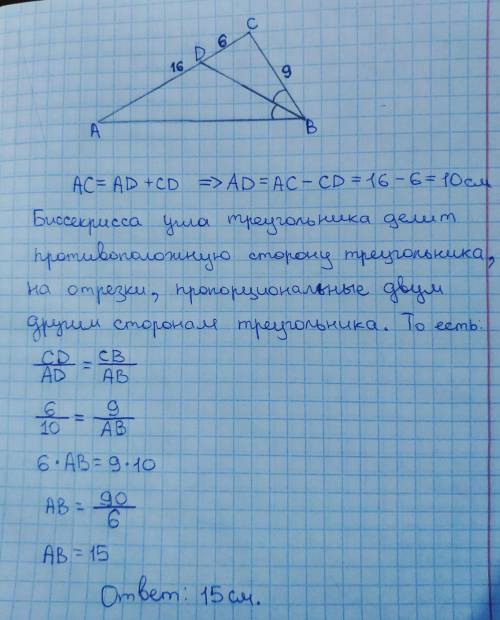 C
6
D
16
9
A
B
AC = AD + CD => AD = AC - CD = 16 - 6 = 10см
Биссекрисса угла треугольника делит
противоположную сторону треугольника,
на отрезки, пропорциональные двум
другим сторонам треугольника. То есть:
CD/AD = CB/AB
6/10 = 9/AB
6 · AB = 9 · 10
AB = 90/6
AB = 15
Ответ: 15см.